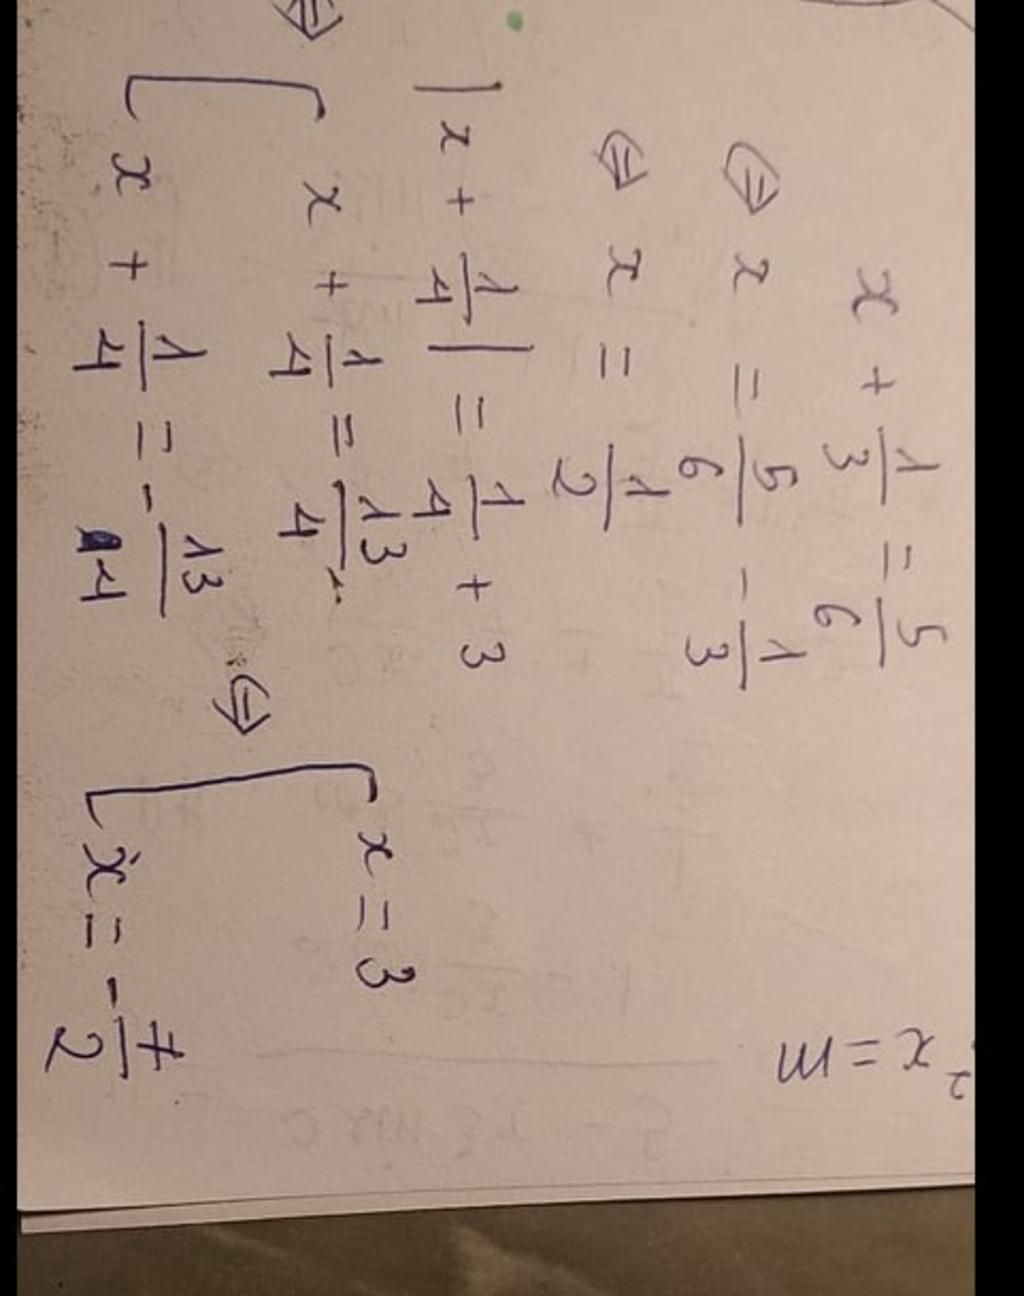 x + 1/3 = 5/6
⇔ x = 5/6 - 1/3
⇔ x = 1/2
|x + 1/4| = 1/4 + 3
⇔ [ x + 1/4 = 13/4
x + 1/4 = - 13/4
⇔ [ x = 3
x = - 7/2
x² = m